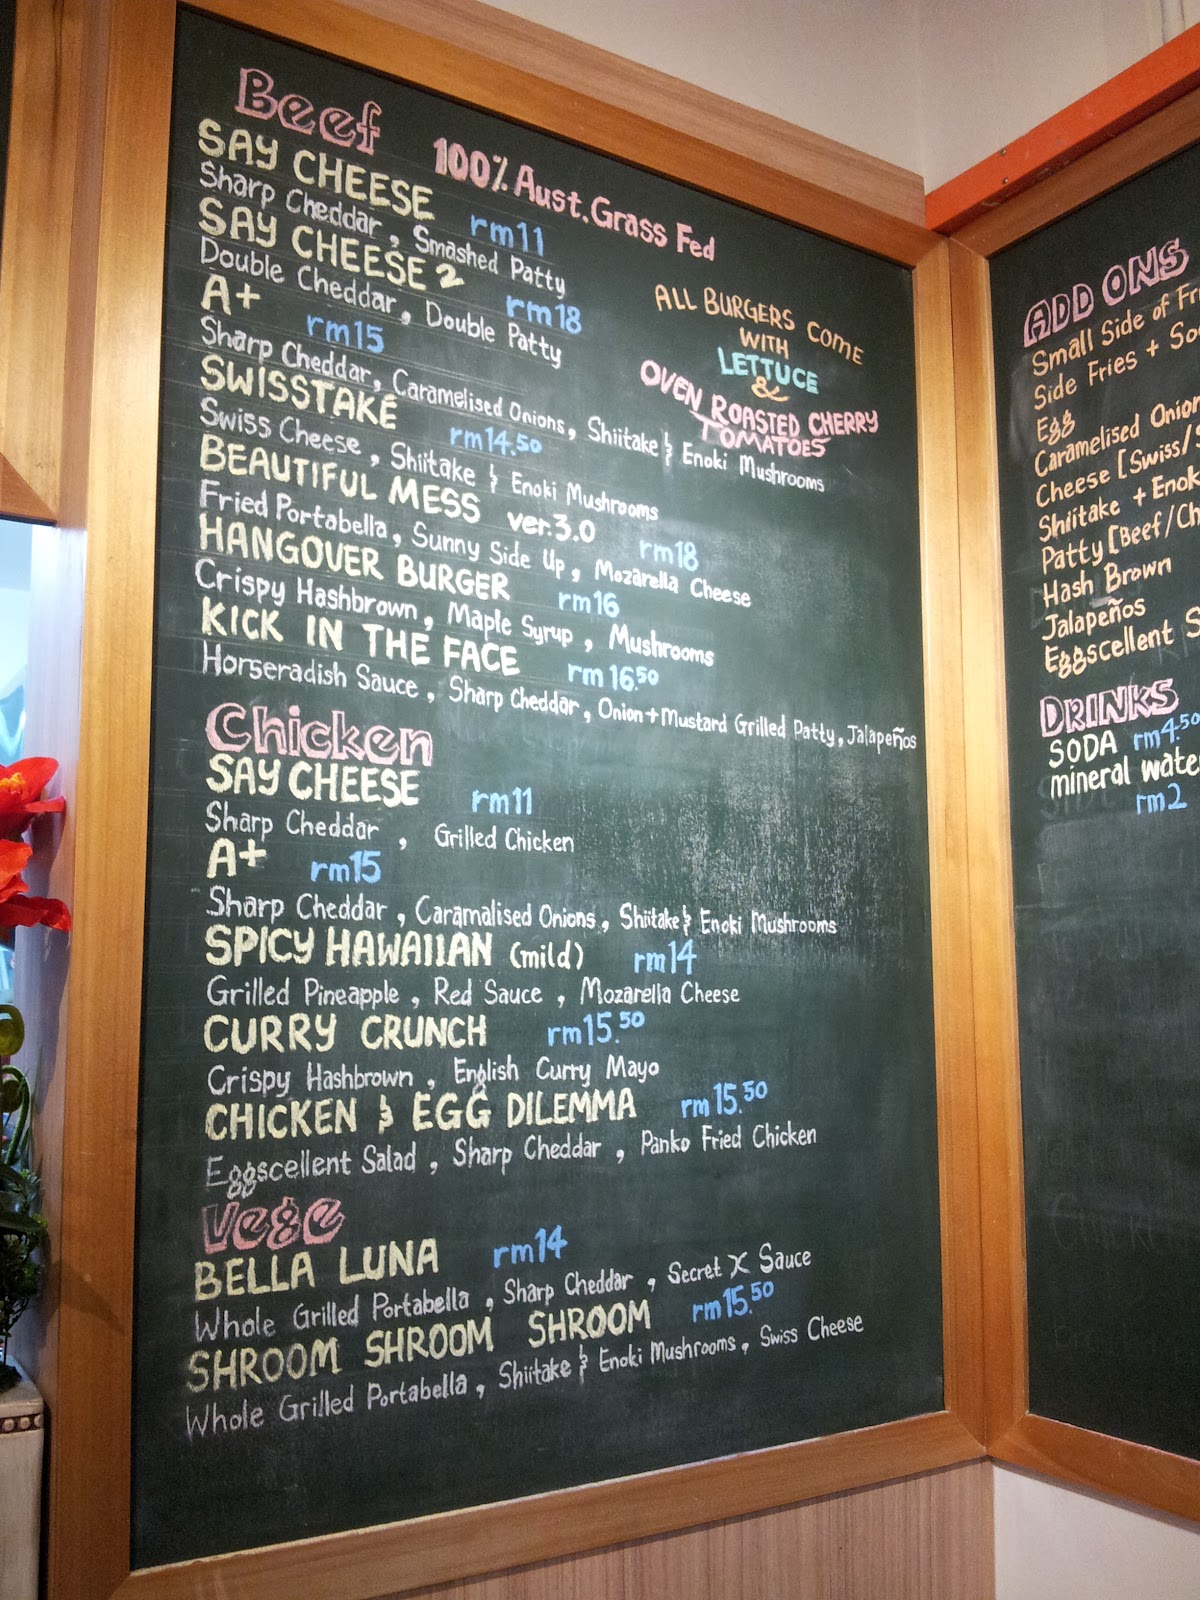 Beef 100% Aust. Grass Fed
SAY CHEESE rm11
Sharp Cheddar, Smashed Patty
SAY CHEESE 2 rm18
Double Cheddar, Double Patty
A+ rm15
Sharp Cheddar, Caramelised Onions, Shiitake & Enoki Mushrooms
SWISSTAKE rm14.50
Swiss Cheese, Shiitake & Enoki Mushrooms
BEAUTIFUL MESS ver.3.0 rm18
Fried Portabella, Sunny Side Up, Mozarella Cheese
HANGOVER BURGER rm16
Crispy Hashbrown, Maple Syrup, Mushrooms
KICK IN THE FACE rm16.50
Horseradish Sauce, Sharp Cheddar, Onion+Mustard Grilled Patty, Jalapeños
ALL BURGERS COME
WITH
LETTUCE
&
OVEN ROASTED CHERRY
TOMATOES
Chicken
SAY CHEESE rm11
Sharp Cheddar, Grilled Chicken
A+ rm15
Sharp Cheddar, Caramalised Onions, Shiitake & Enoki Mushrooms
SPICY HAWAIIAN (mild) rm14
Grilled Pineapple, Red Sauce, Mozarella Cheese
CURRY CRUNCH rm15.50
Crispy Hashbrown, English Curry Mayo
CHICKEN & EGG DILEMMA rm15.50
Eggscellent Salad, Sharp Cheddar, Panko Fried Chicken
Vege
BELLA LUNA rm14
Whole Grilled Portabella, Sharp Cheddar, Secret X Sauce
SHROOM SHROOM SHROOM rm15.50
Whole Grilled Portabella, Shiitake & Enoki Mushrooms, Swiss Cheese
ADD ONS
Small Side of
Side Fries +
Egg
Caramelised Onion
Cheese [Swiss/
Shiitake + Enok
Patty [Beef/Ch
Hash Brown
Jalapeños
Eggscellent
DRINKS
SODA rm4.50
mineral wate
rm2